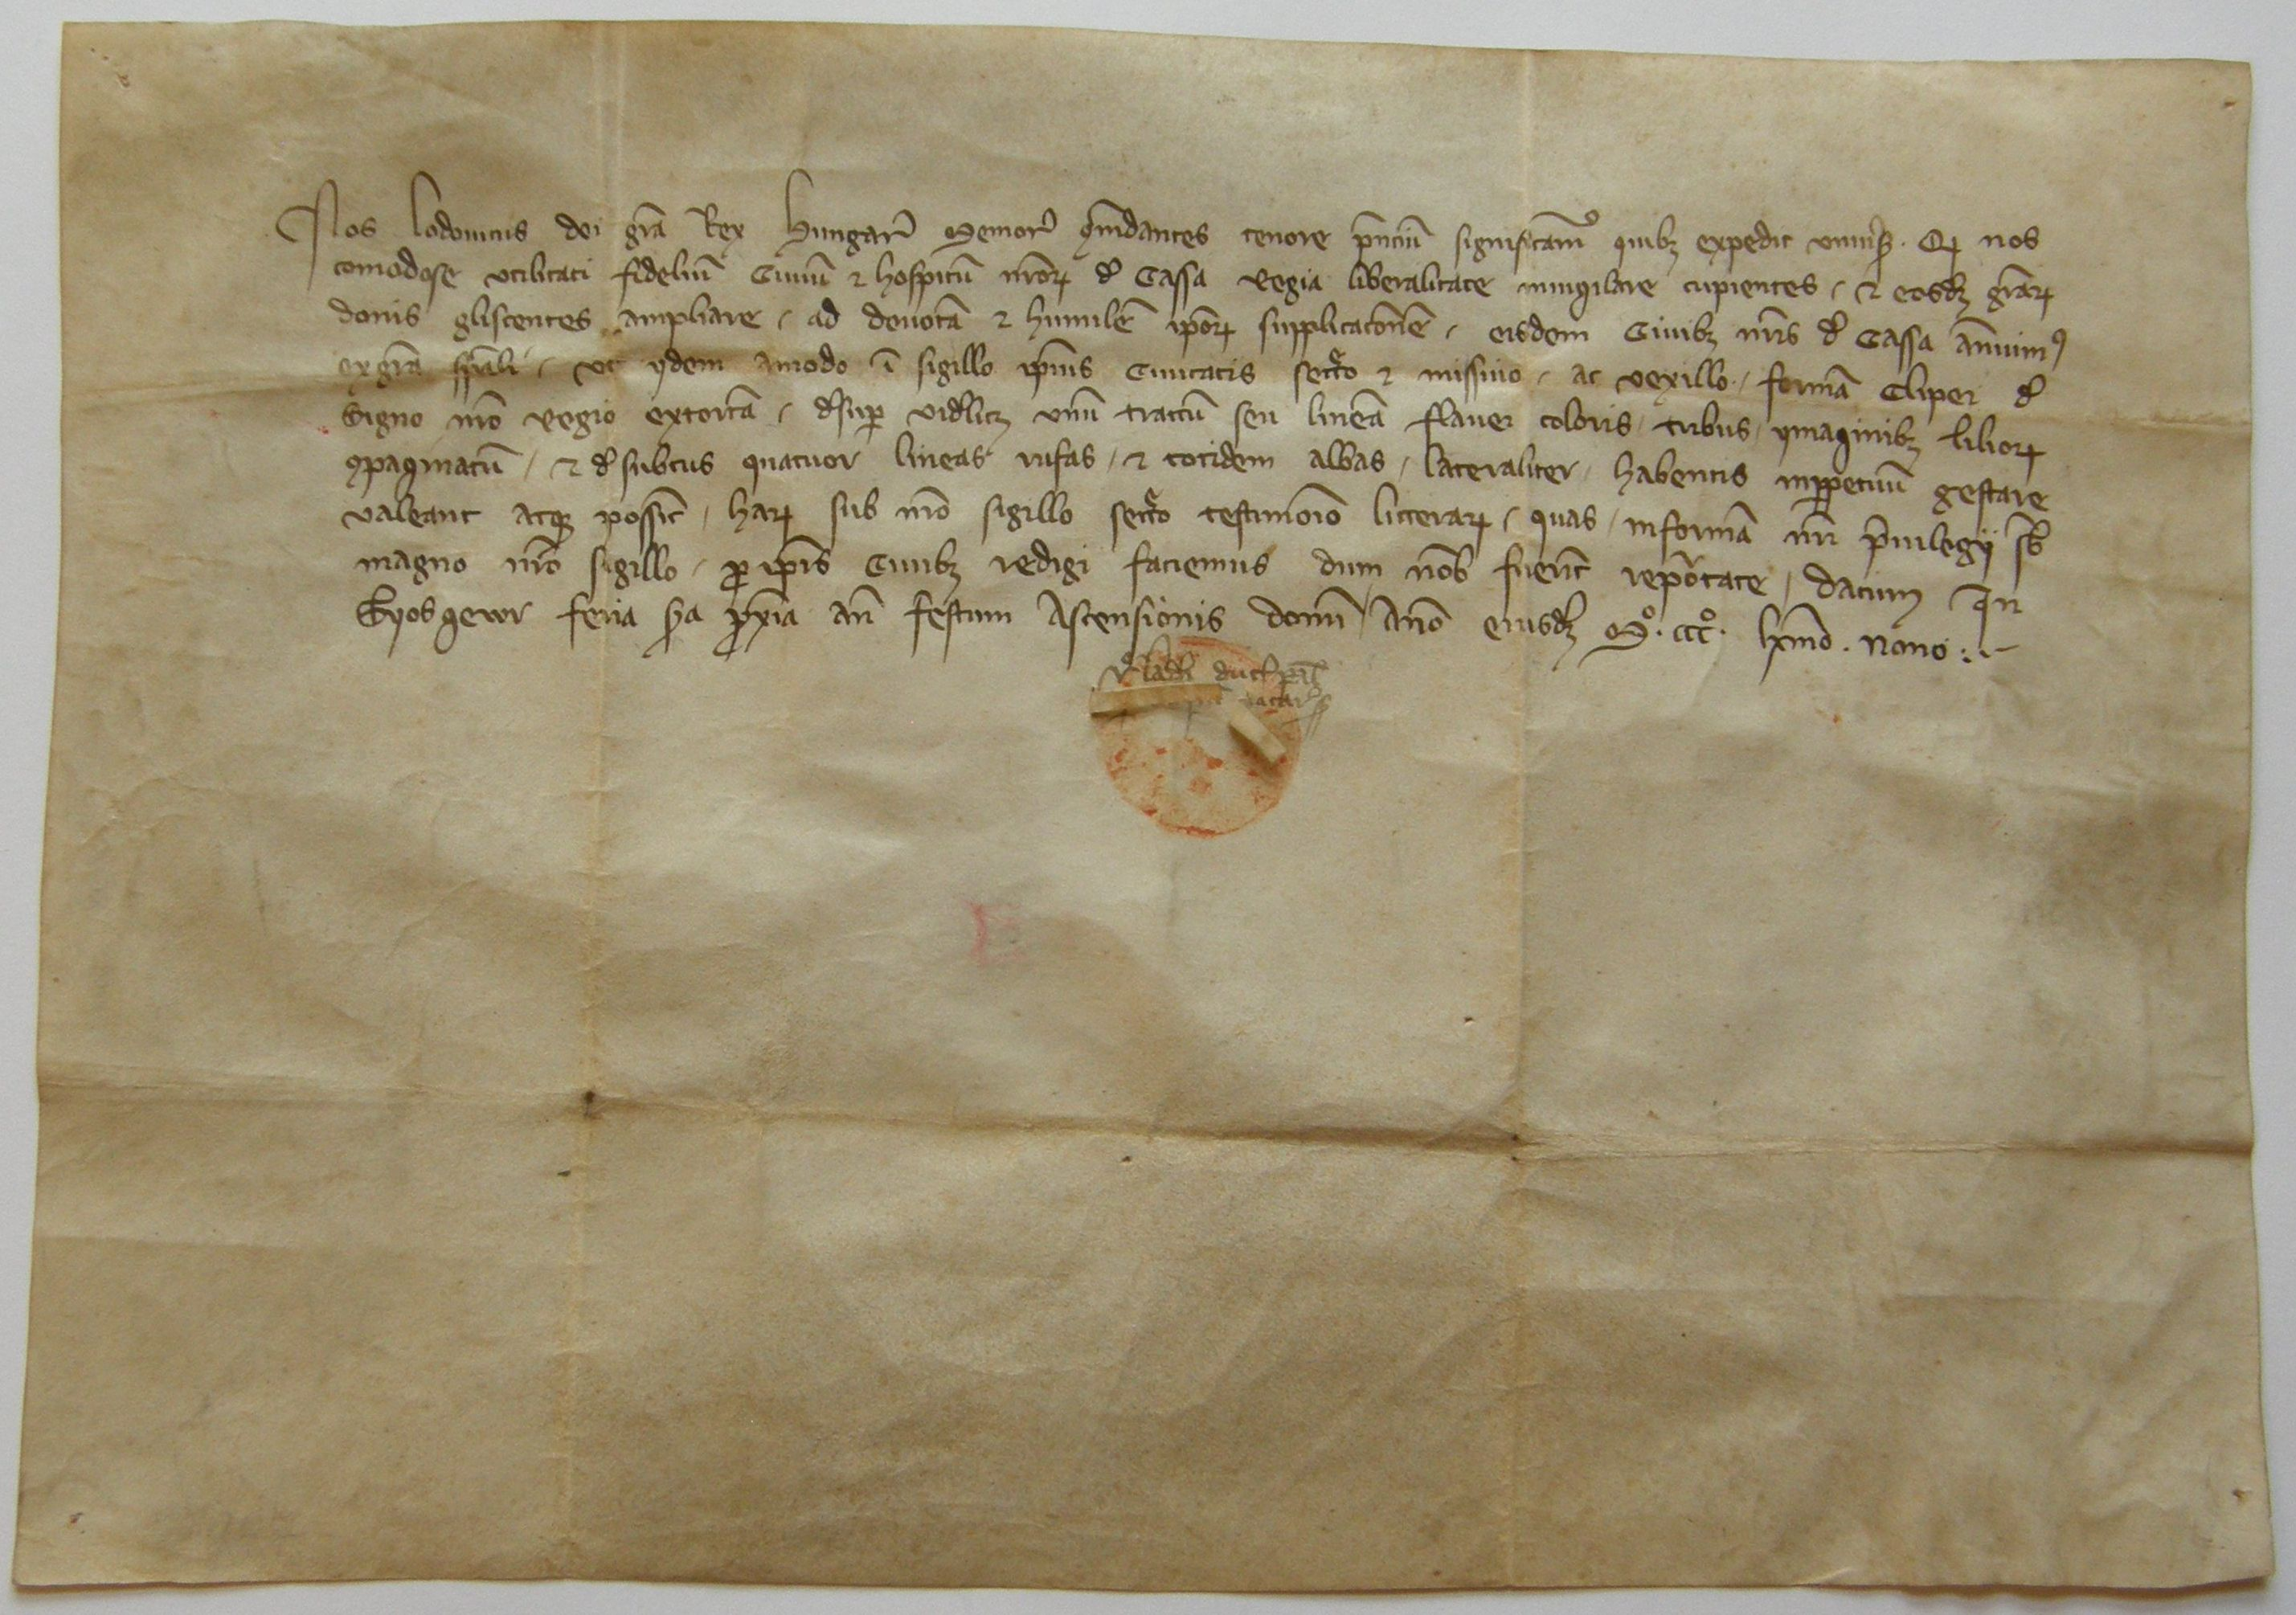 Nos lodouicus dei gra̅ Rex Hungar̅ Memor̅ ꝯm̅dantes tenore pn̅ciu̅ significamꝰ quibꝫ expedit vniuꝰs. Qꝫ nos
comodose vtilitati fideliu̅ Ciuiu̅ ⁊ hospitu̅ nr̅oꝝ d̅ Cassa Regia liberalitate inuigilare cupientes / ⁊ eosdꝫ gr̅aꝝ
donis gliscentes ampliare / ad deuota̅ ⁊ humile̅ ipo̅ꝝ supplicaco̅ne̅ / eisdem Ciuibꝫ nr̅is d̅ Cassa an̅uimꝰ
ex gr̅a spa̅li / vt ydem amodo i̅ sigillo ipi̅us Ciuitatis secr̅to ⁊ missiuo / ac vexillo / forma̅ Clipei d̅
Signo nr̅o Regio extorta̅ / d̅sup̅ vidl̅icꝫ vnu̅ tractu̅ seu linea̅ flauei coloris / tribus / ymaginibꝫ liliorꝝ
ꝯpaginatu̅ / ⁊ d̅ subtus quatuor lineas rufas / ⁊ totidem albas / lateraliter / habentis inꝑpetuu̅ gestare
valeant atqꝫ possi̅t / haꝝ sub nr̅o sigillo secr̅to testimoi̅o litteraꝝ / quas / in forma̅ nr̅i p̅uilegij sb̅
magno nr̅o sigillo / ꝓ ipi̅s Ciuibꝫ redigi faciemus dum nob̅ fueri̅t repo̅rtate / datum In
Gyosgewr feria sc̅da p̅xi̅a an̅ festum Ascensionis domi̅ / An̅o eiusdꝫ Mº. cccº. lxmo̅. nono :.~